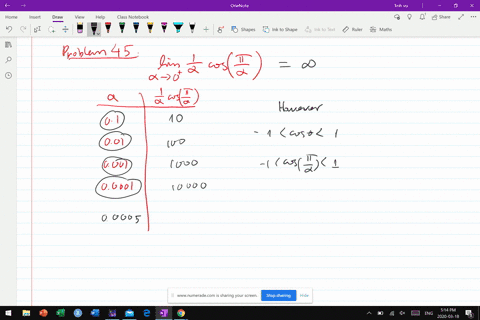 OneNote
File Home Insert Draw View Help Class Notebook
Shapes Ink to Shape Ink to Text Math Ruler
Problem 45
lim α→0⁺ 1/α cos(π/α) = ∞
α | 1/α cos(π/α)
0.1 | 10
0.01 | 100
0.001 | 1000
0.0001 | 10000
0.0005
However
-1 < cos α < 1
-1 < cos(π/α) < 1
www.numerade.com is sharing your screen. Stop sharing Hide
ENG
5:14 PM
2020-05-18